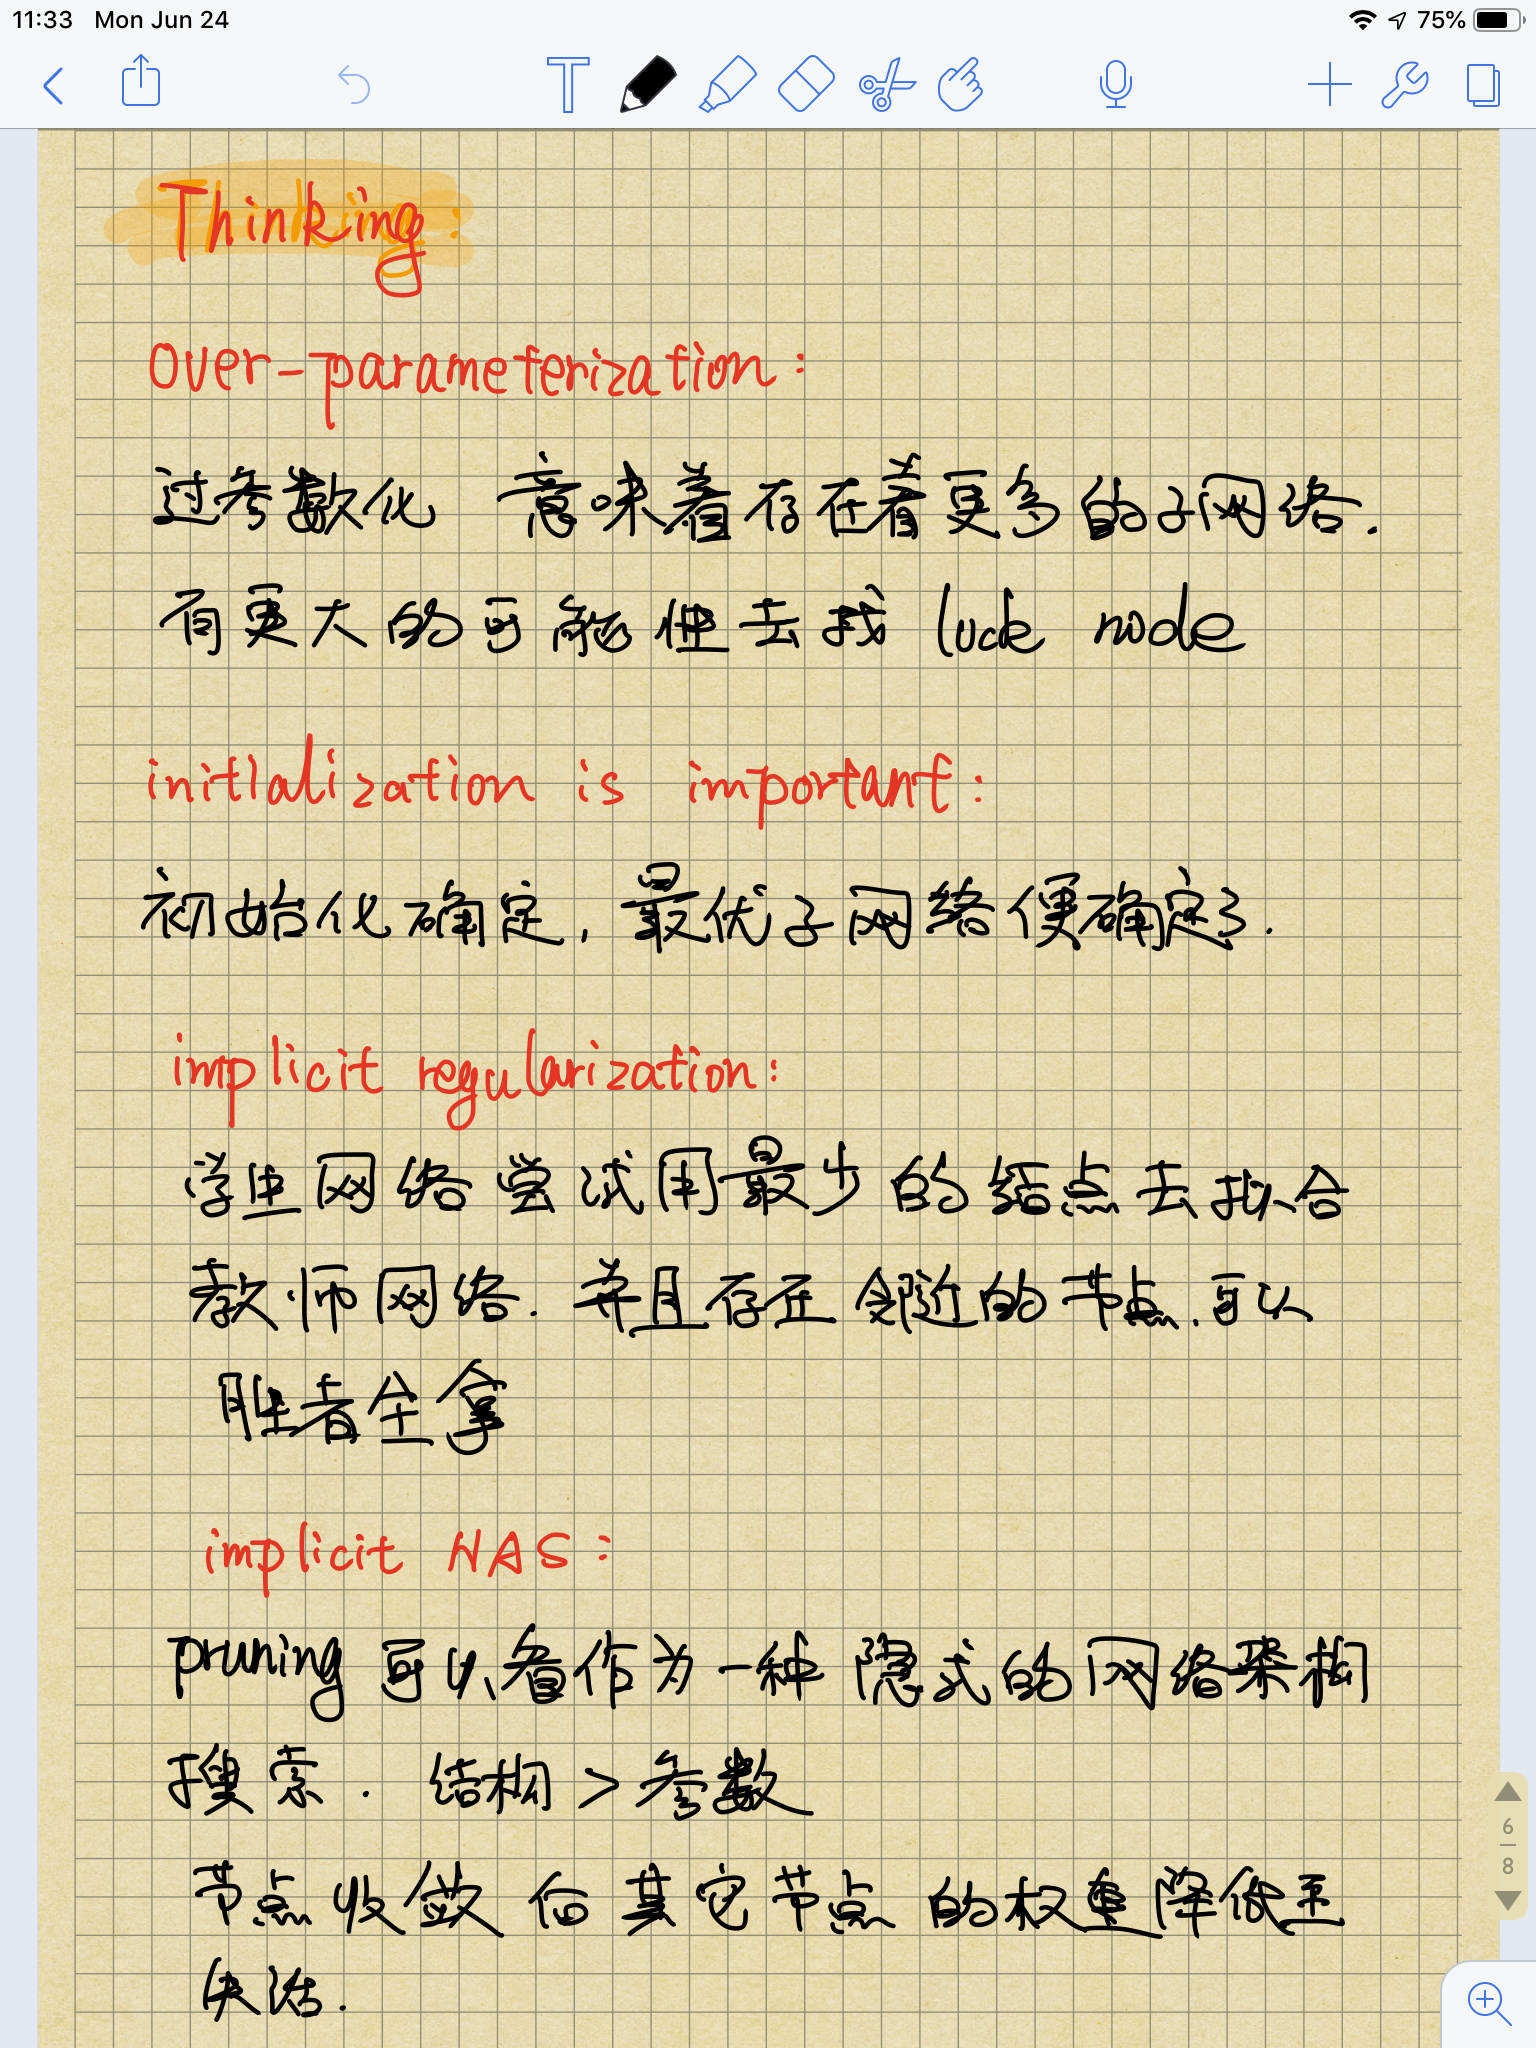 11:33 Mon Jun 24 75%
Thinking:
Over-parameterization:
过参数化 意味着存在着更多的子网络.
有更大的可能性去找 luck node
initialization is important:
初始化确定, 最优子网络便确定了.
implicit regularization:
学生网络尝试用最少的结点去拟合
教师网络. 并且存在邻近的节点.可以
胜者全拿
implicit NAS:
pruning 可以看作为一种 隐式的网络架构
搜索. 结构 > 参数
节点收敛 但其它节点的权重降低至
失活.
6
8